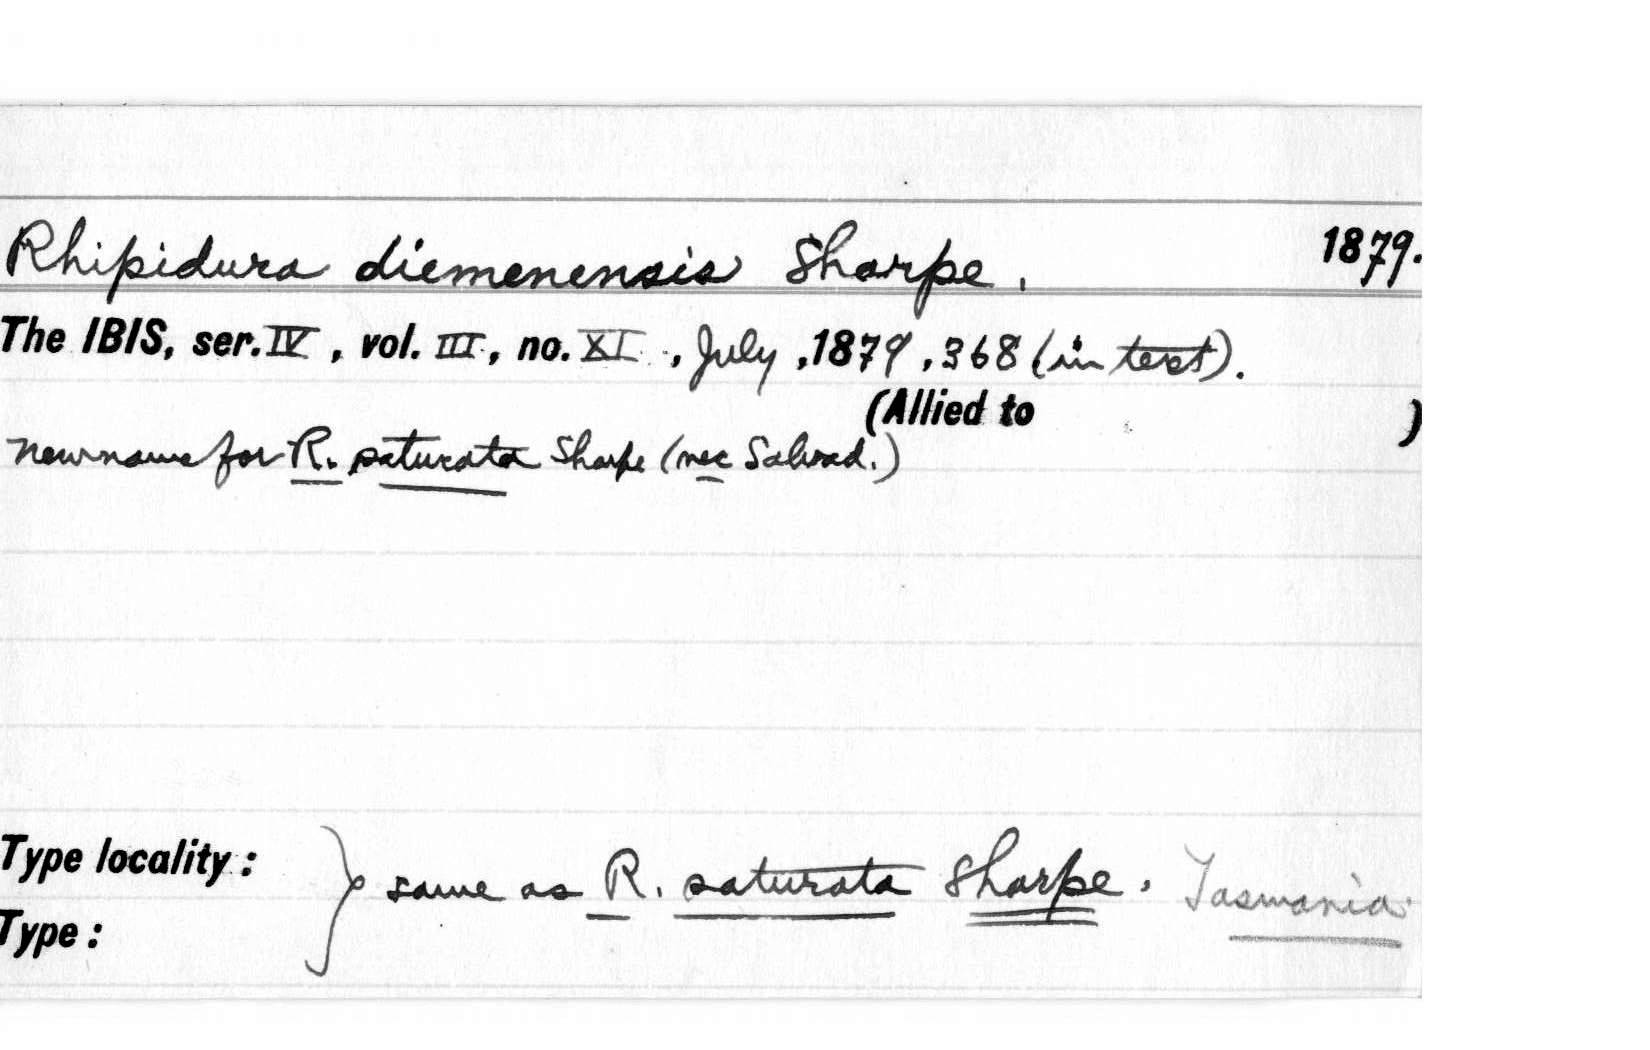 Rhipidura diemenensis Sharpe. 1879.
The IBIS, ser. IV, vol. III, no. XI, July, 1879, 368 (in text).
(Allied to )
New name for R. saturata Sharpe (nec Salvad.)
Type locality : } same as R. saturata Sharpe. Tasmania.
Type :